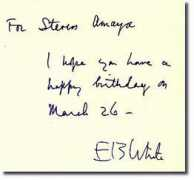 For Steven Amaya
I hope you have a
happy birthday on
March 26 –
EB White